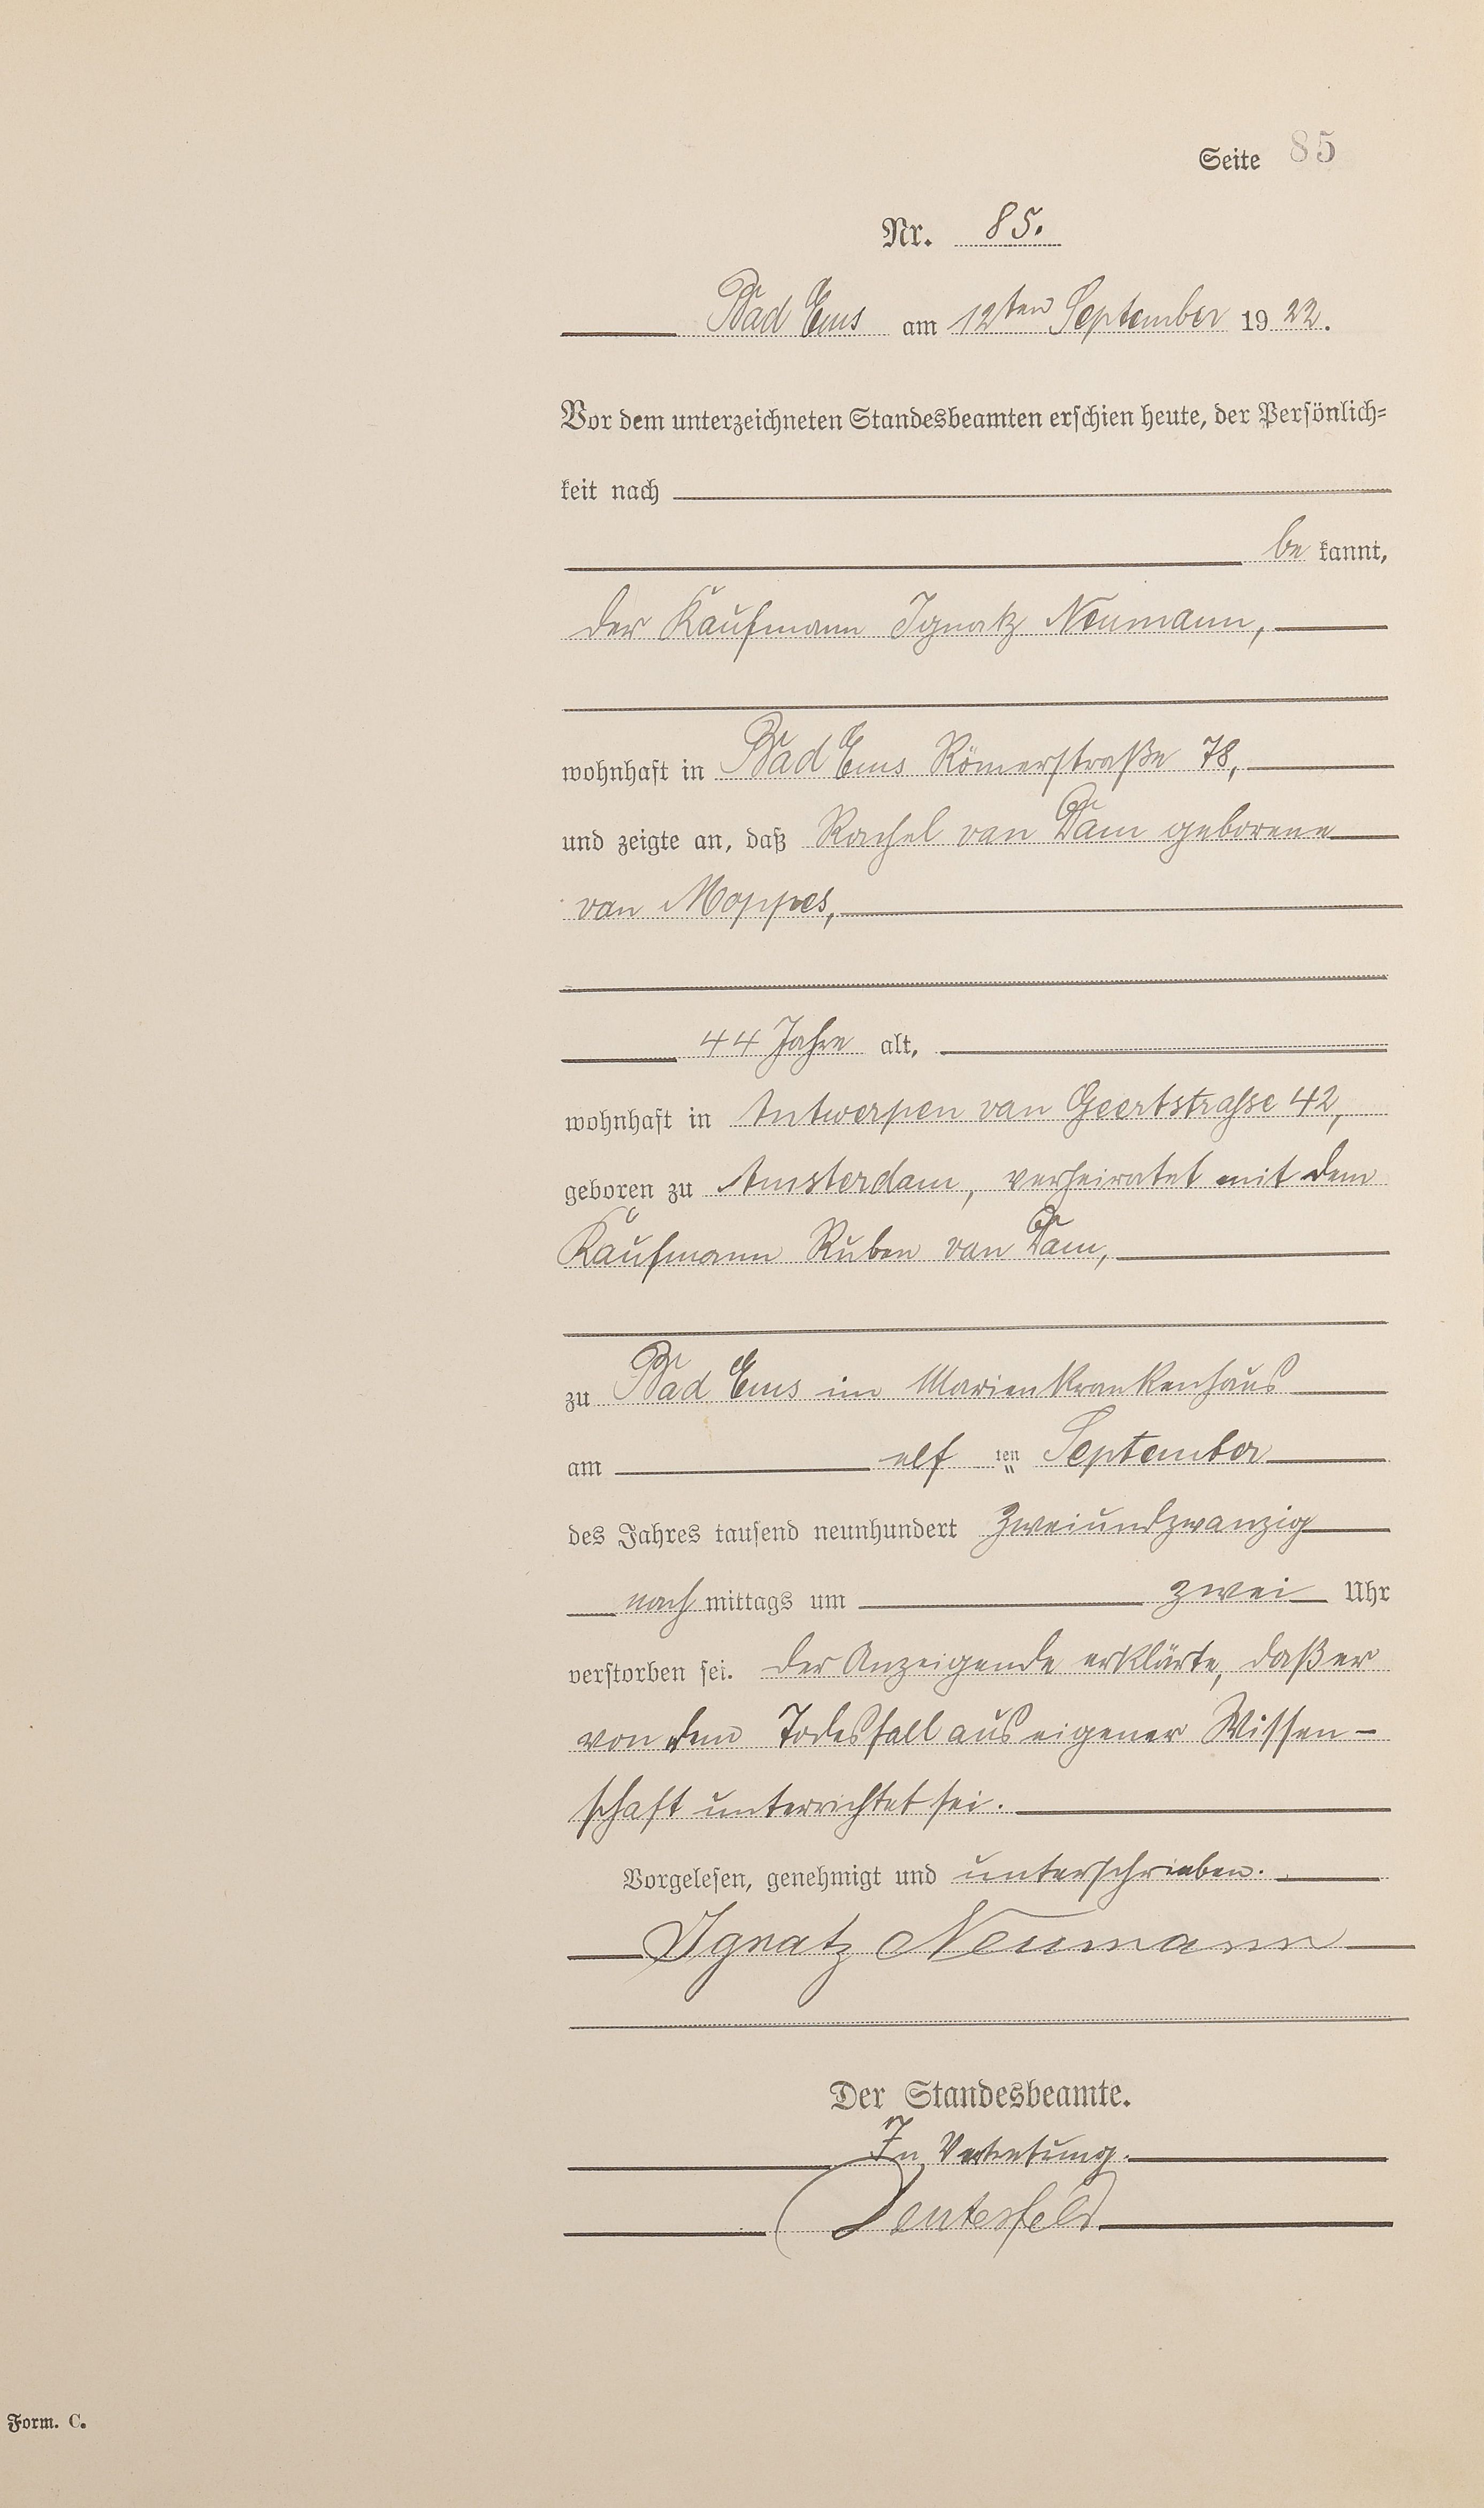 Seite 85
Nr. 85.
Bad Ems am 12ten September 19 22.
Vor dem unterzeichneten Standesbeamten erschien heute, der Persönlich=
keit nach
be kannt,
der Kaufmann Ignatz Neumann,
wohnhaft in Bad Ems Römerstraße 78,
und zeigte an, daß Rachel van Dam geborene
van Moppes,
44 Jahre alt,
wohnhaft in Antwerpen van Geertstrasse 42,
geboren zu Amsterdam, verheiratet mit dem
Kaufmann Ruben van Dam,
zu Bad Ems im Marienkrankenhaus
am elf ten September
des Jahres tausend neunhundert zweiundzwanzig
nach mittags um zwei Uhr
verstorben sei. Der Anzeigende erklärte, daß er
von dem Todesfall aus eigener Wissen-
schaft unterrichtet sei.
Vorgelesen, genehmigt und unterschrieben.
Ignatz Neumann
Der Standesbeamte.
In Vertretung.
Form. C.